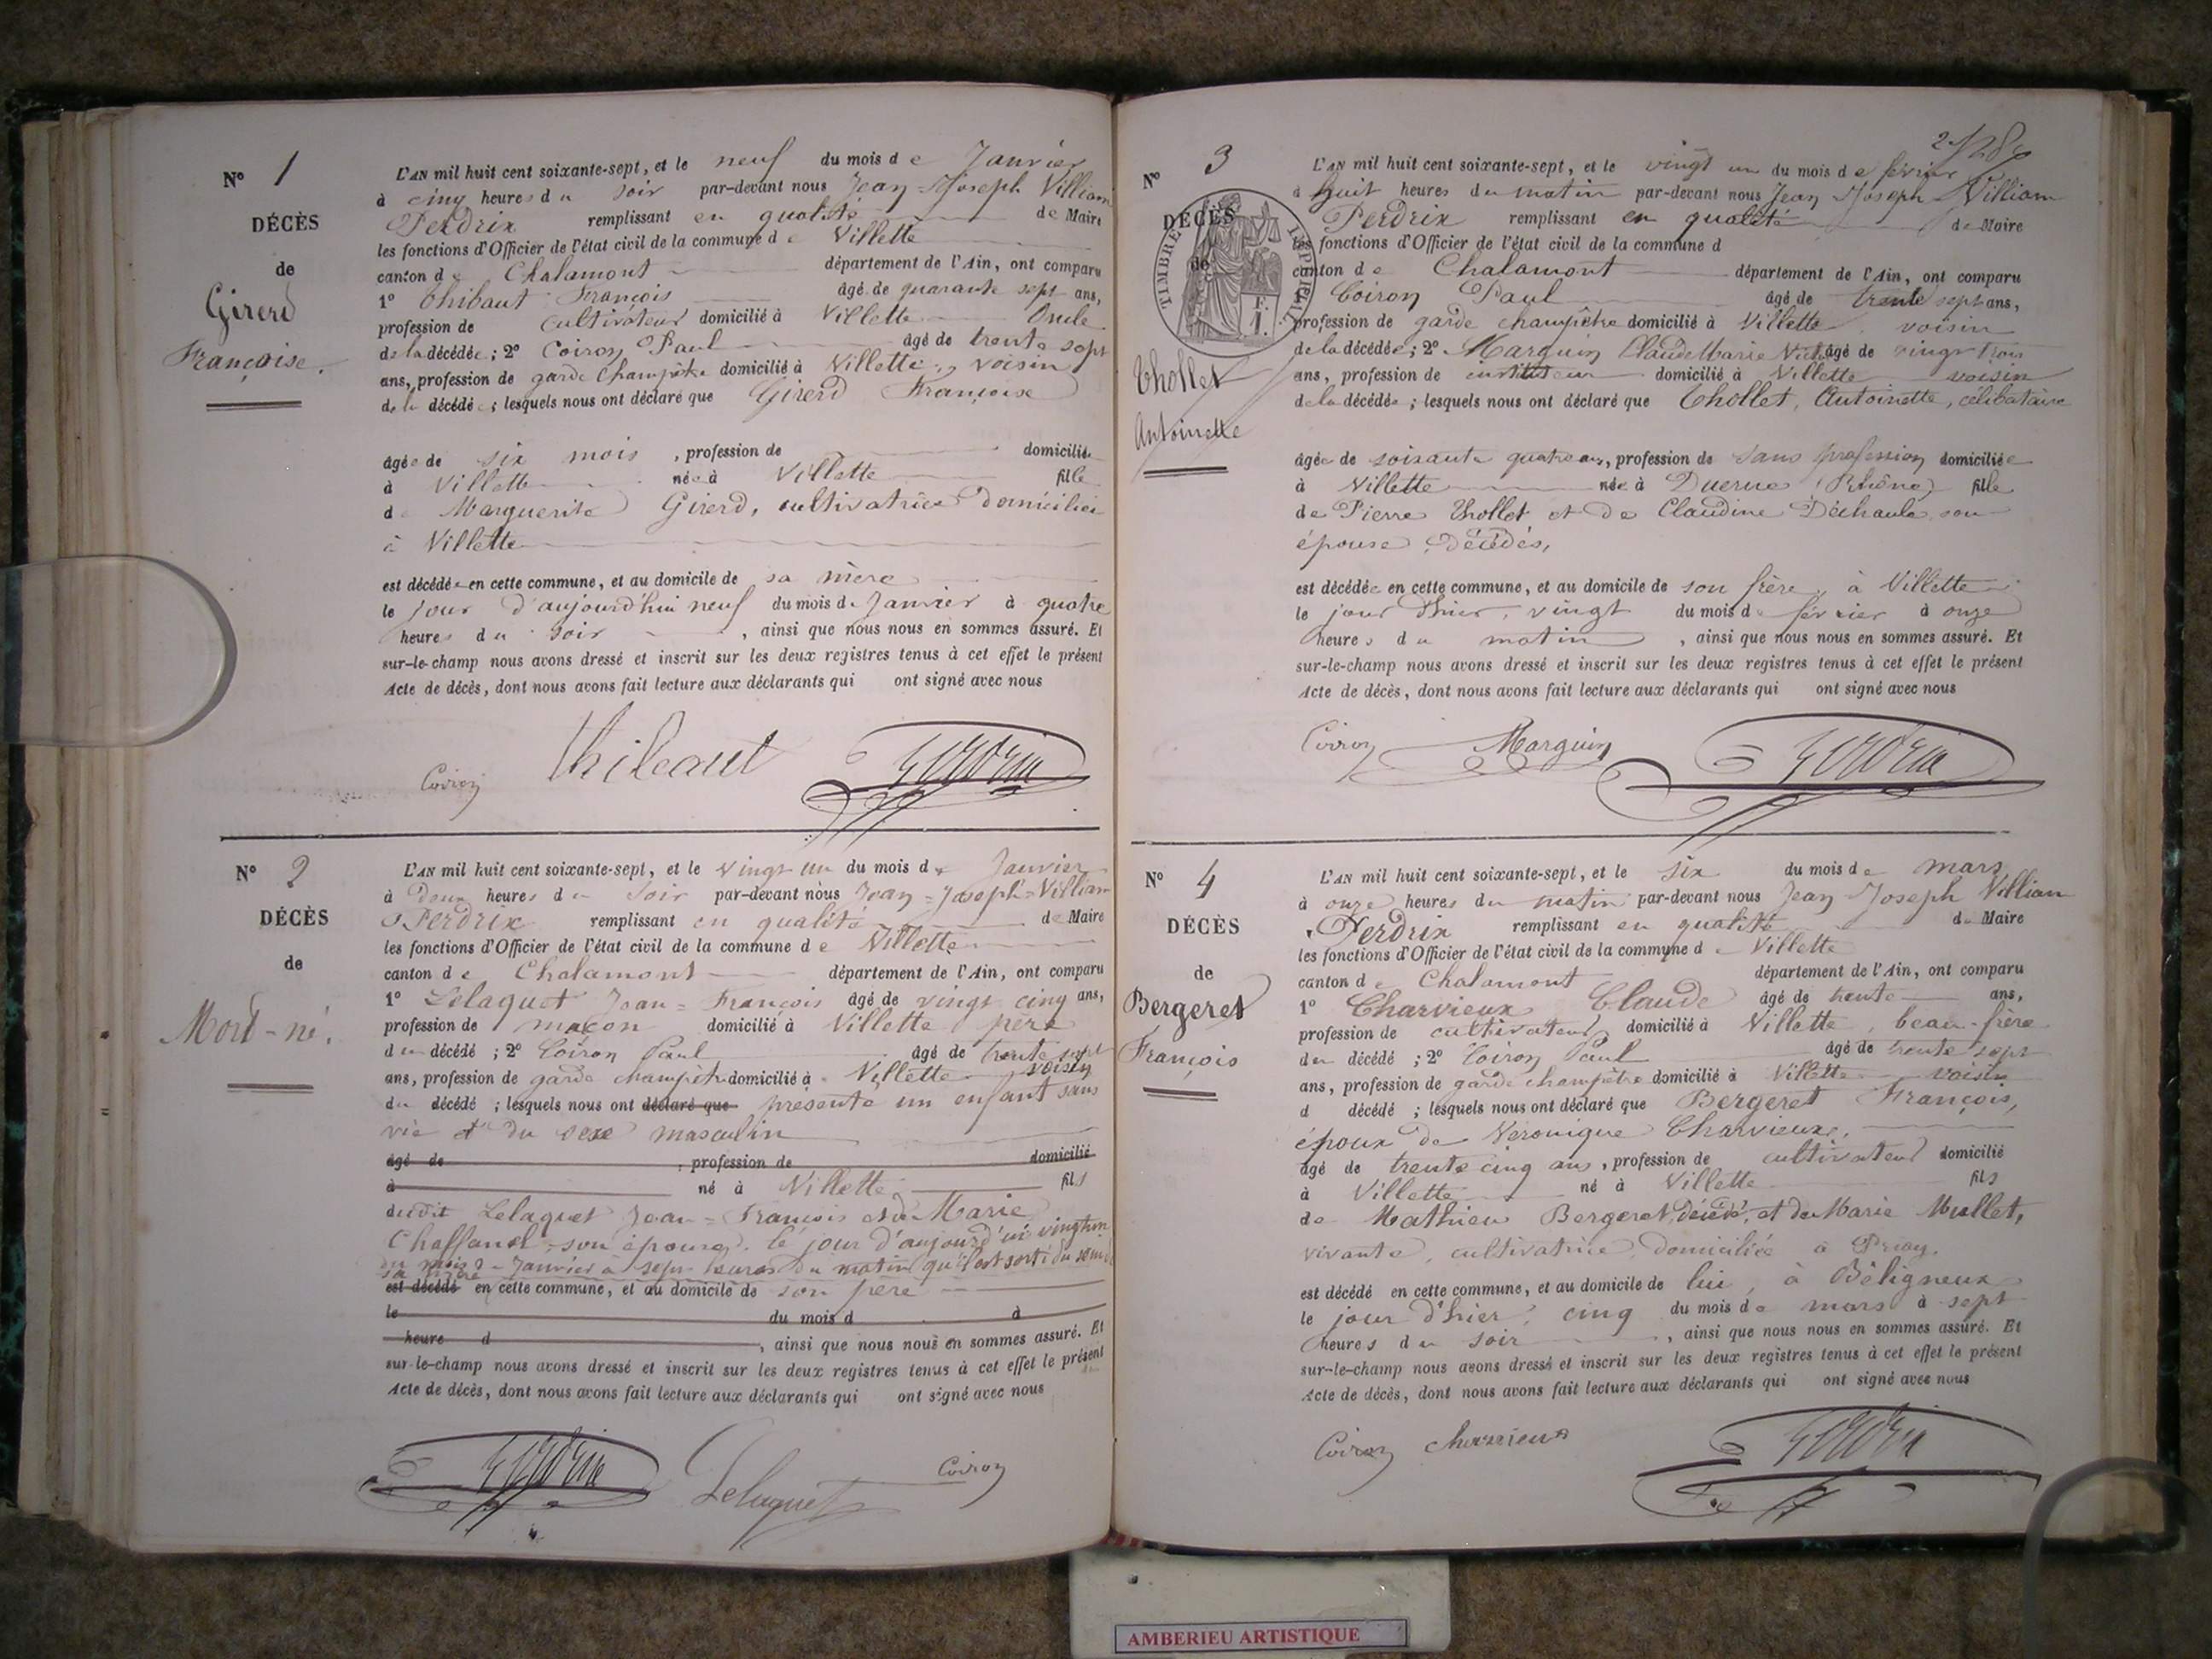 N° 1
DÉCÈS
de
Girerd
Françoise.
L'AN mil huit cent soixante-sept, et le neuf du mois de Janvier
à cinq heures du soir par-devant nous Jean-Joseph Villiam
Perdrix remplissant en qualité de Maire
les fonctions d'Officier de l'état civil de la commune de Villette
canton de Chalamont département de l'Ain, ont comparu
1° Thibaut François âgé de quarante sept ans,
profession de cultivateur domicilié à Villette Oncle
de la décédée; 2° Coiron Paul âgé de trente sept
ans, profession de garde champêtre domicilié à Villette, voisin
de la décédée; lesquels nous ont déclaré que Girerd Françoise
âgée de six mois, profession de domiciliée
à Villette née à Villette fille
de Marguerite Girerd, cultivatrice domiciliée
à Villette
est décédée en cette commune, et au domicile de sa mère
le jour d'aujourd'hui neuf du mois de Janvier à quatre
heures du soir, ainsi que nous nous en sommes assuré. Et
sur-le-champ nous avons dressé et inscrit sur les deux registres tenus à cet effet le présent
Acte de décès, dont nous avons fait lecture aux déclarants qui ont signé avec nous
Coiron Thibaut Perdrix
N° 2
DÉCÈS
de
Mort-né.
L'AN mil huit cent soixante-sept, et le vingt un du mois de Janvier
à Deux heures du Soir par-devant nous Jean=Joseph=Villiam
Perdrix remplissant en qualité de Maire
les fonctions d'Officier de l'état civil de la commune de Villette
canton de Chalamont département de l'Ain, ont comparu
1° Lelaquet Jean=François âgé de vingt cinq ans,
profession de maçon domicilié à Villette père
du décédé; 2° Coiron Paul âgé de trente sept
ans, profession de garde champêtre domicilié à Villette voisin
du décédé; lesquels nous ont déclaré que présenté un enfant sans
vie et du sexe masculin
âgé de, profession de domicilié
à né à Villette fils
dudit Lelaquet Jean=François et de Marie
son épouse, le jour d'aujourd'ui vingt un
du mois de Janvier à sept heures du matin qu'il est sorti du sein de
sa mère
est décédé en cette commune, et au domicile de son père
le du mois d à
heure d, ainsi que nous nous en sommes assuré. Et
sur-le-champ nous avons dressé et inscrit sur les deux registres tenus à cet effet le présent
Acte de décès, dont nous avons fait lecture aux déclarants qui ont signé avec nous
Perdrix Lelaquet Coiron
N° 3
DÉCÈS
de
TIMBRE IMPERIAL
F. 1.
Thollet
Antoinette
L'AN mil huit cent soixante-sept, et le vingt un du mois de février
à huit heures du matin par-devant nous Jean Joseph Villiam
Perdrix remplissant en qualité de Maire
les fonctions d'Officier de l'état civil de la commune d
canton de Chalamont département de l'Ain, ont comparu
Coiron Paul âgé de trente sept ans,
profession de garde champêtre domicilié à Villette, voisin
de la décédée; 2° Marguin Claude Marie âgé de vingt trois
ans, profession de instituteur domicilié à Villette voisin
de la décédée; lesquels nous ont déclaré que Thollet, Antoinette, célibataire
âgée de soixante quatre ans, profession de sans profession domiciliée
à Villette née à Duerne (Rhône) fille
de Pierre Thollet et de Claudine Déchaule son
épouse, Décédés,
est décédée en cette commune, et au domicile de son frère, à Villette
le jour d'hier, vingt du mois de février à onze
heures du matin, ainsi que nous nous en sommes assuré. Et
sur-le-champ nous avons dressé et inscrit sur les deux registres tenus à cet effet le présent
Acte de décès, dont nous avons fait lecture aux déclarants qui ont signé avec nous
Coiron Marguin Perdrix
N° 4
DÉCÈS
de
Bergeret
François
L'AN mil huit cent soixante-sept, et le six du mois de mars
à onze heures du matin par-devant nous Jean-Joseph Villiam
Perdrix remplissant en qualité de Maire
les fonctions d'Officier de l'état civil de la commune de Villette
canton de Chalamont département de l'Ain, ont comparu
1° Charvieux Claude âgé de trente ans,
profession de cultivateur domicilié à Villette, beau-frère
du décédé; 2° Coiron Paul âgé de trente sept
ans, profession de garde champêtre domicilié à Villette voisin
d décédé; lesquels nous ont déclaré que Bergeret François,
époux de Véronique Charvieux,
âgé de trente cinq ans, profession de cultivateur domicilié
à Villette né à Villette fils
de Mathieu Bergeret, décédé, et de Marie Mullet,
vivante, cultivatrice, domiciliée à Priay
est décédé en cette commune, et au domicile de lui, à Béligneux
le jour d'hier, cinq du mois de mars à sept
heures du soir, ainsi que nous nous en sommes assuré. Et
sur-le-champ nous avons dressé et inscrit sur les deux registres tenus à cet effet le présent
Acte de décès, dont nous avons fait lecture aux déclarants qui ont signé avec nous
Coiron Charvieux Perdrix
AMBERIEU ARTISTIQUE